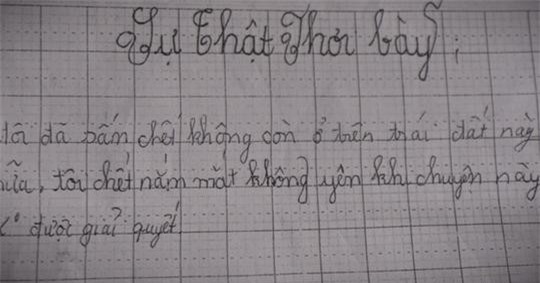 Sự thật Phơi bày;
tôi đã bấm chết không còn ở trên trái đất này
nữa, tôi chết nằm mắt không yên khi chuyện này
được giải quyết